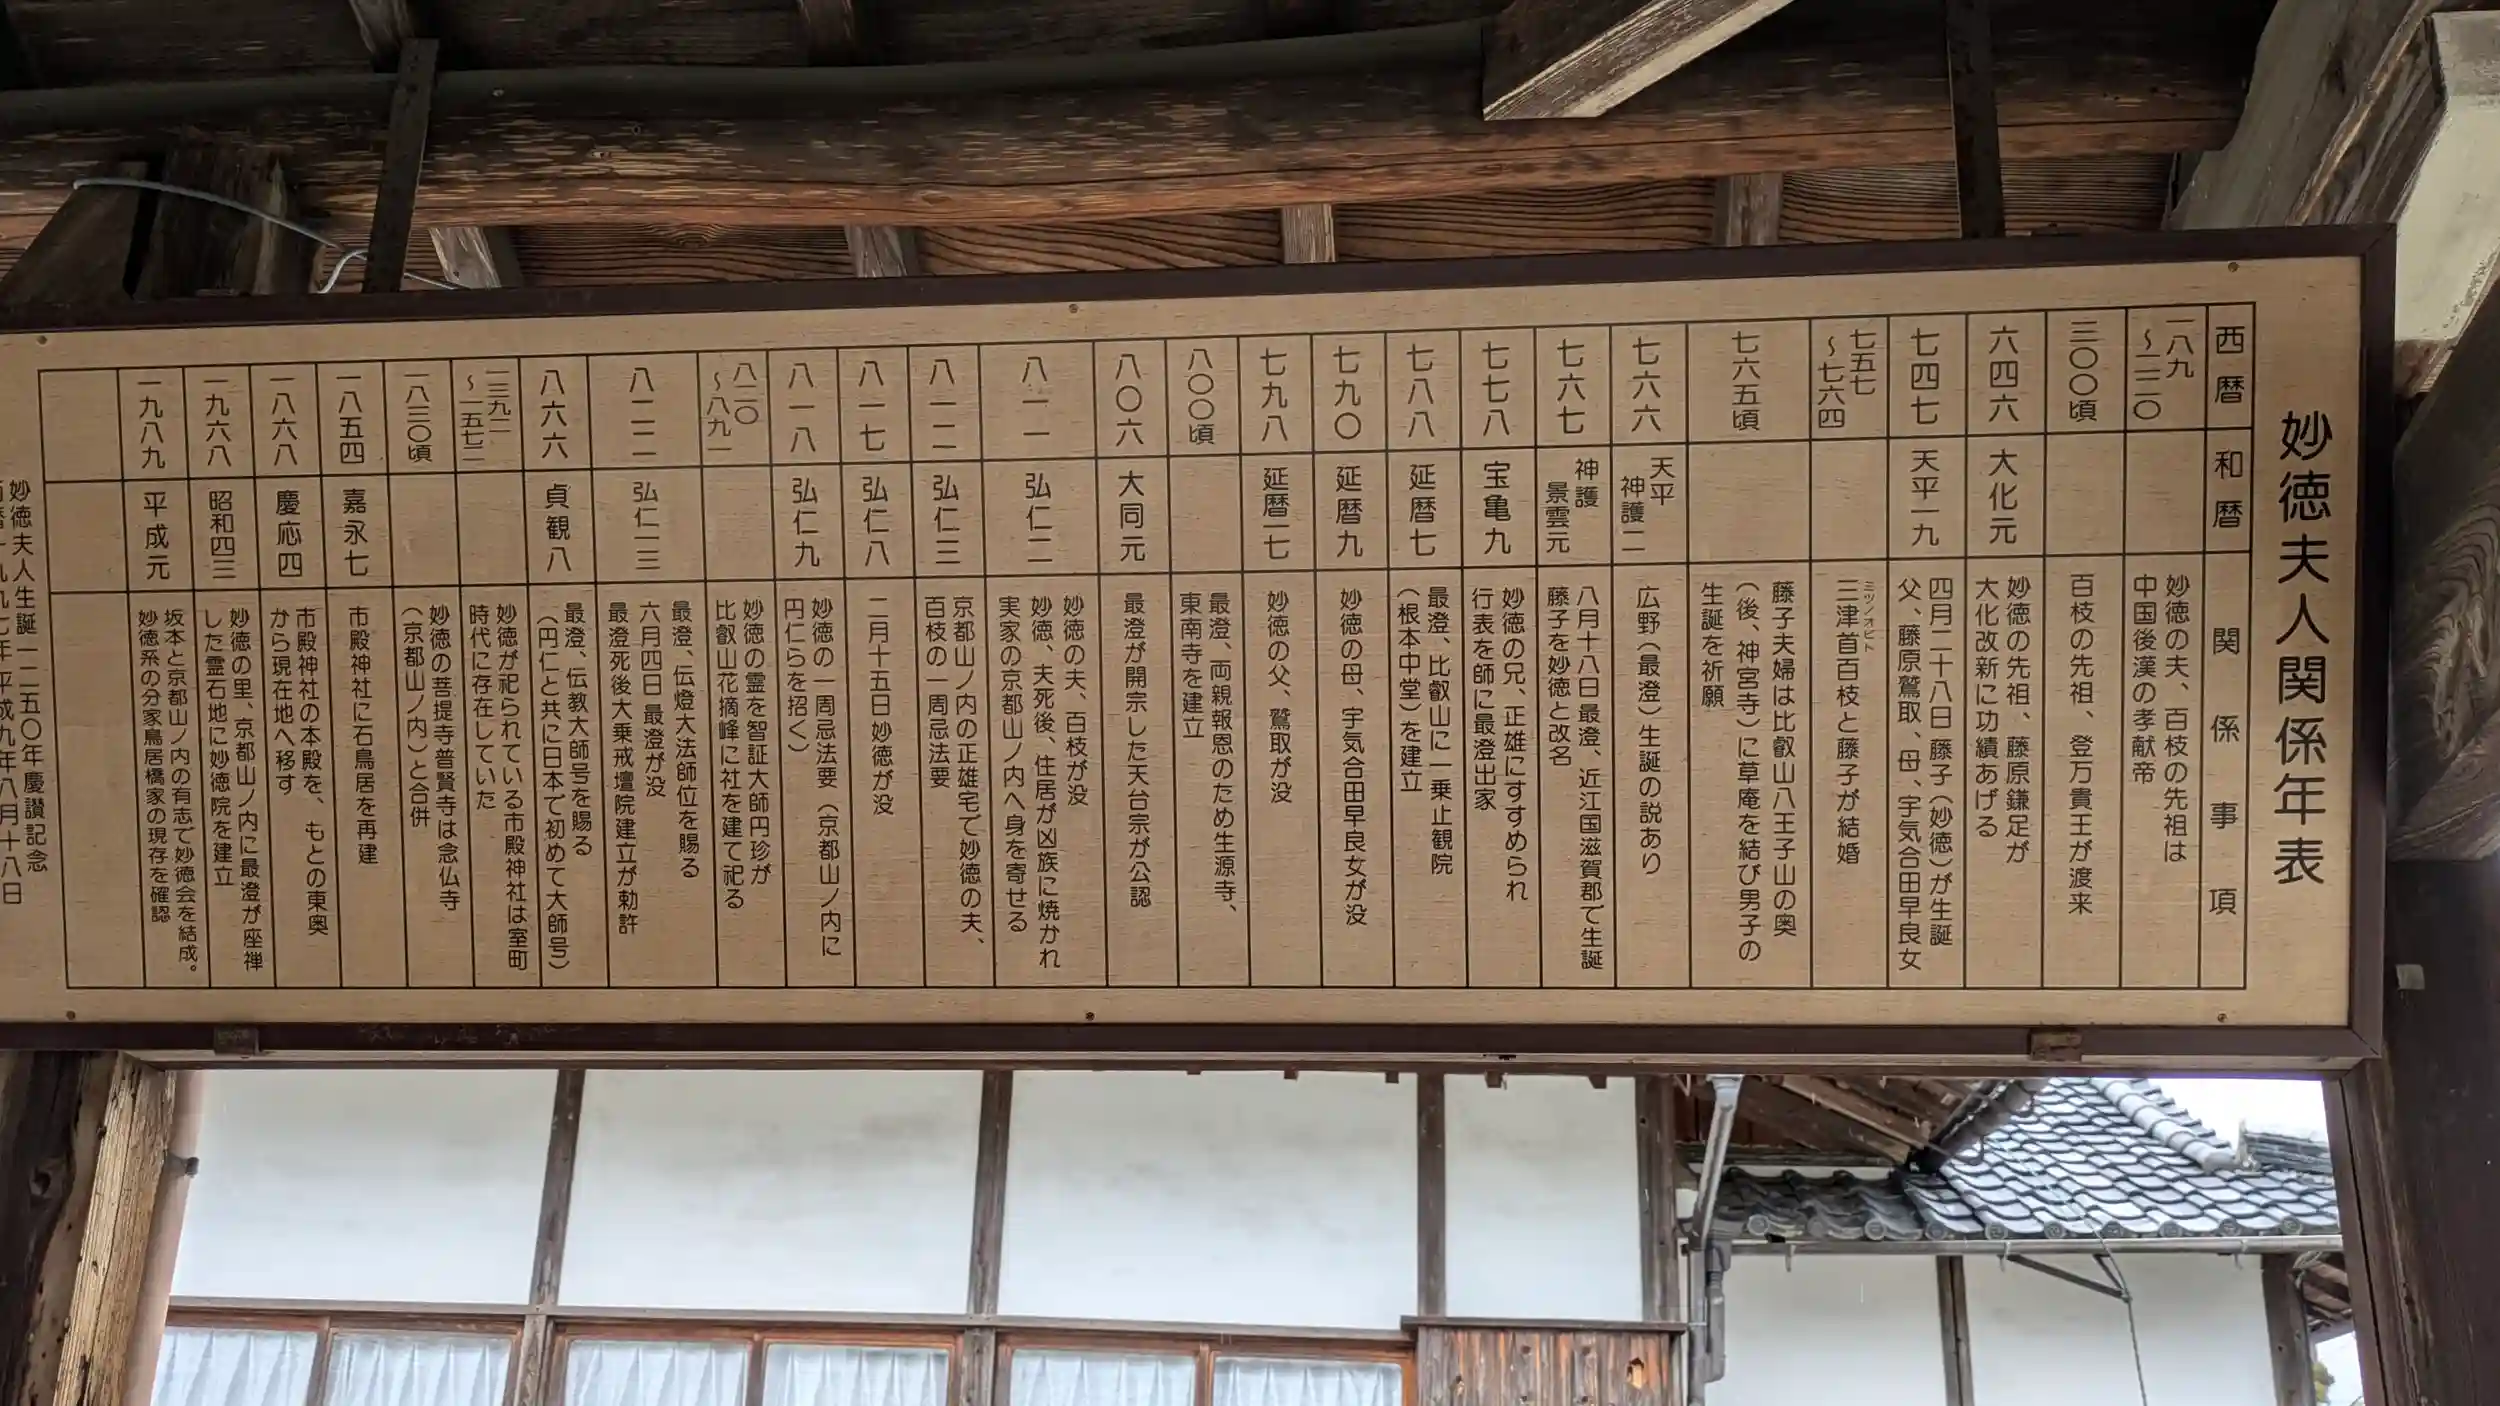 妙徳夫人関係年表
西暦
和暦
関係事項
一八九
～二二〇
妙徳の夫、百枝の先祖は
中国後漢の孝献帝
三〇〇頃
百枝の先祖、登万貴王が渡来
六四六
大化元
妙徳の先祖、藤原鎌足が
大化改新に功績あげる
七四七
天平一九
四月二十八日 藤子（妙徳）が生誕
父、藤原鷲取、母、宇気合田早良女
七五七
～七六四
三津首百枝と藤子が結婚
ミツノオビト
七六五頃
藤子夫婦は比叡山八王子山の奥
（後、神宮寺）に草庵を結び男子の
生誕を祈願
七六六
天平
神護二
広野（最澄）生誕の説あり
七六七
神護
景雲元
八月十八日 最澄、近江国滋賀郡で生誕
藤子を妙徳と改名
七七八
宝亀九
妙徳の兄、正雄にすすめられ
行表を師に最澄出家
七八八
延暦七
最澄、比叡山に一乗止観院
（根本中堂）を建立
七九〇
延暦九
妙徳の母、宇気合田早良女が没
七九八
延暦一七
妙徳の父、鷲取が没
八〇〇頃
最澄、両親報恩のため生源寺、
東南寺を建立
八〇六
大同元
最澄が開宗した天台宗が公認
八一一
弘仁二
妙徳の夫、百枝が没
妙徳、夫死後、住居が凶族に焼かれ
実家の京都山ノ内へ身を寄せる
八一二
弘仁三
京都山ノ内の正雄宅で妙徳の夫、
百枝の一周忌法要
八一七
弘仁八
二月十五日 妙徳が没
八一八
弘仁九
妙徳の一周忌法要（京都山ノ内に
円仁らを招く）
八二〇
～八九一
妙徳の霊を智証大師円珍が
比叡山花摘峰に社を建て祀る
八二二
弘仁一三
最澄、伝燈大法師位を賜る
六月四日 最澄が没
最澄死後大乗戒壇院建立が勅許
八六六
貞観八
最澄、伝教大師号を賜る
（円仁と共に日本で初めて大師号）
一三九二
～一五七三
妙徳が祀られている市殿神社は室町
時代に存在していた
一八三〇頃
妙徳の菩提寺普賢寺は念仏寺
（京都山ノ内）と合併
一八五四
嘉永七
市殿神社に石鳥居を再建
一八六八
慶応四
市殿神社の本殿を、もとの東奥
から現在地へ移す
一九六八
昭和四三
妙徳の里、京都山ノ内に最澄が座禅
した霊石地に妙徳院を建立
一九八九
平成元
坂本と京都山ノ内の有志で妙徳会を結成。
妙徳系の分家鳥居橋家の現存を確認
妙徳夫人生誕一二五〇年慶讃記念
西暦一九九七年平成九年八月十八日